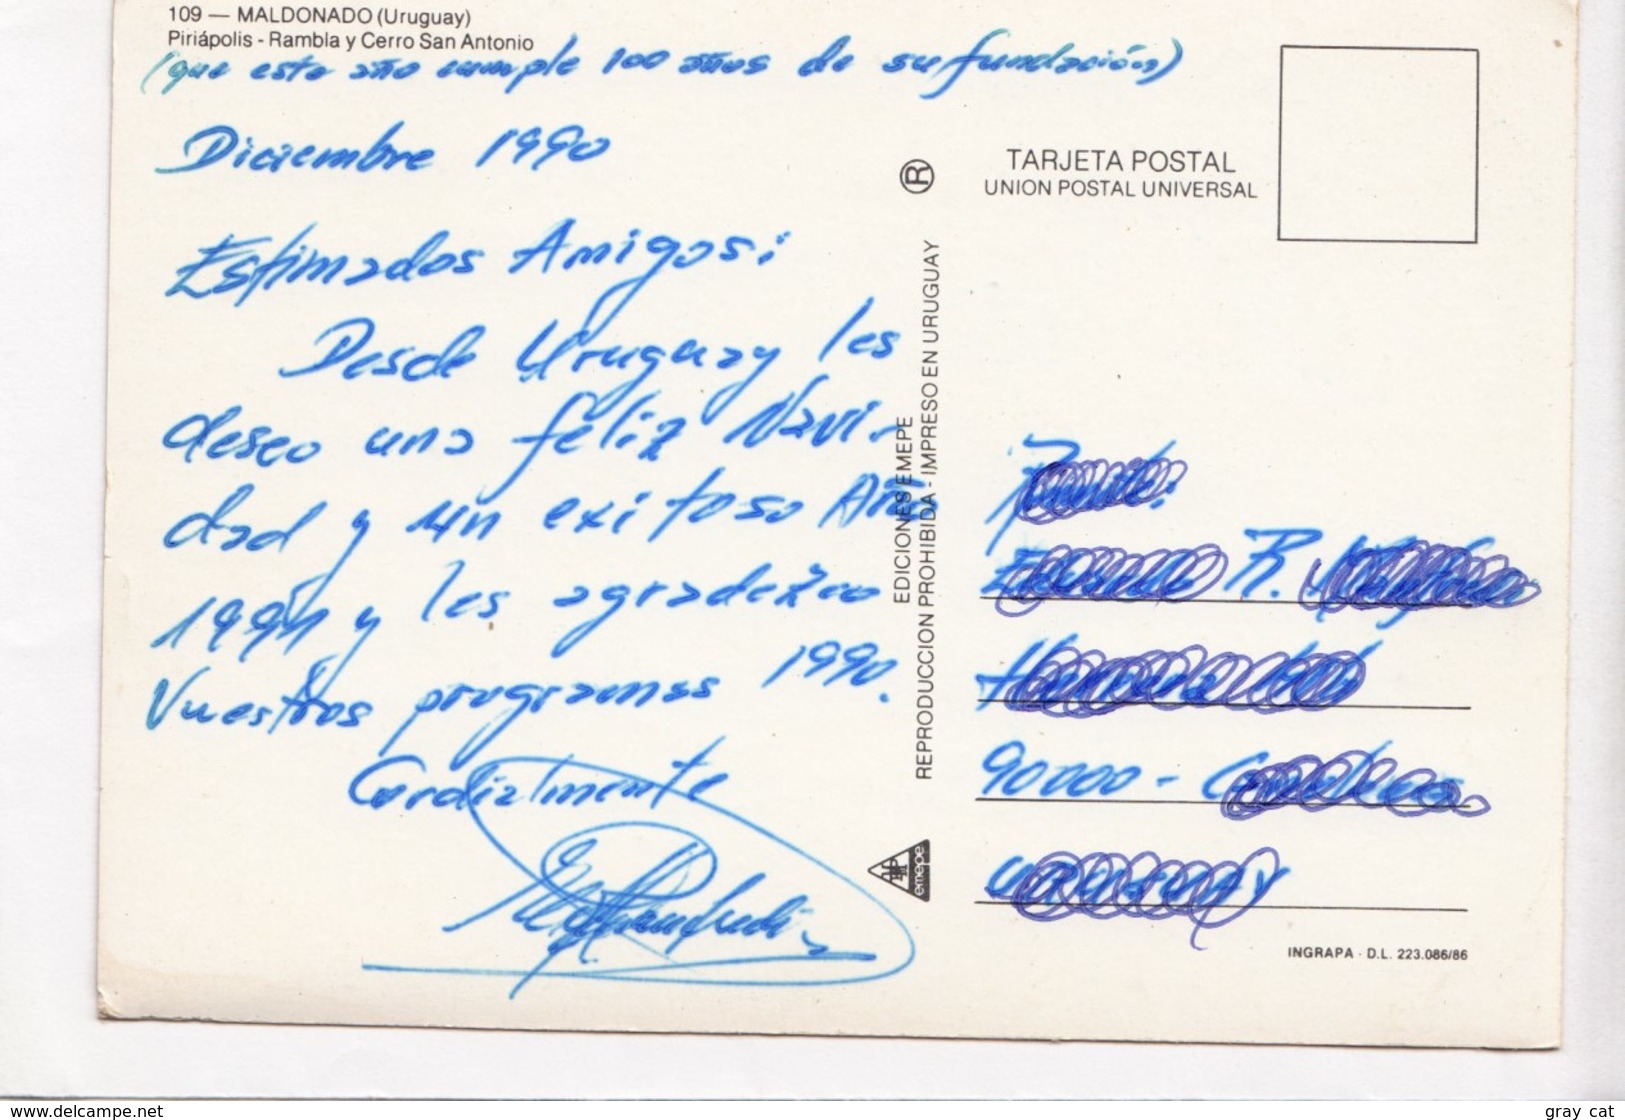 109 — MALDONADO (Uruguay)
Piriápolis - Rambla y Cerro San Antonio
(que este año cumple 100 años de su fundación)
Diciembre 1990
Estimados Amigos:
Desde Uruguay les
deseo una feliz Navi-
dad y un exitoso Año
1991 y les agradezco
Vuestros programas 1990.
Cordialmente
EDICIONES EMEPE
REPRODUCCION PROHIBIDA - IMPRESO EN URUGUAY
R
emepe
TARJETA POSTAL
UNION POSTAL UNIVERSAL
R.
90000 -
INGRAPA - D.L. 223.086/86
www.delcampe.net
gray cat